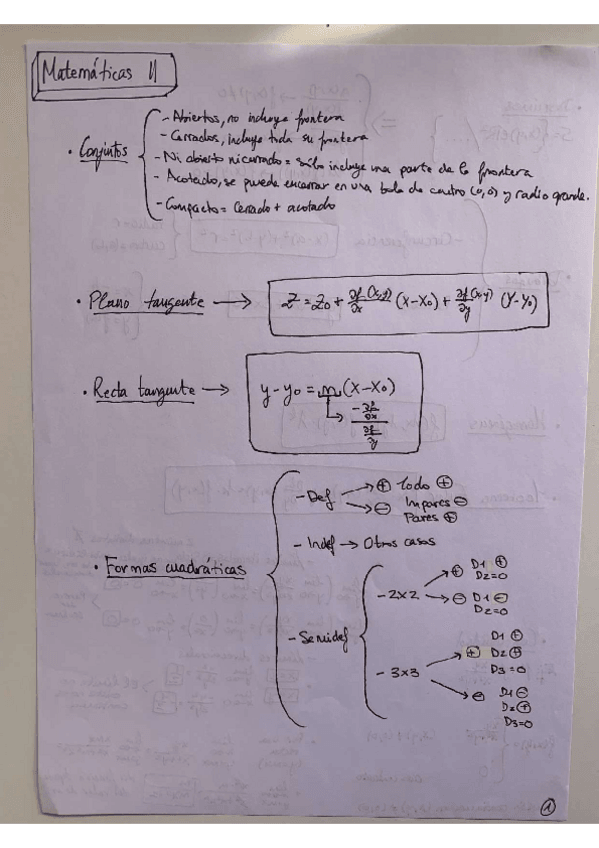 Matemáticas II
· Conjuntos
- Abiertos, no incluye frontera
- Cerrados, incluye toda su frontera
- Ni abierto ni cerrado = sólo incluye una parte de la frontera
- Acotado, se puede encerrar en una bola de centro (0,0) y radio grande.
- Compacto = Cerrado + acotado
· Plano tangente → Z = Z₀ + ∂f(x,y)/∂x (x-x₀) + ∂f(x,y)/∂y (y-y₀)
· Recta tangente → y-y₀ = m(x-x₀)
↳ -∂f/∂x / ∂f/∂y
· Formas cuadráticas
- Def → ⊕ todo ⊕
→ ⊖ Impares ⊖
Pares ⊕
- Indef → Otros casos
- Semidef
- 2x2 → ⊕ D1 ⊕
D2=0
→ ⊖ D1 ⊖
D2=0
- 3x3 → ⊕ D1 ⊕
D2 ⊕
D3=0
→ ⊖ D1 ⊖
D2 ⊕
D3=0
1